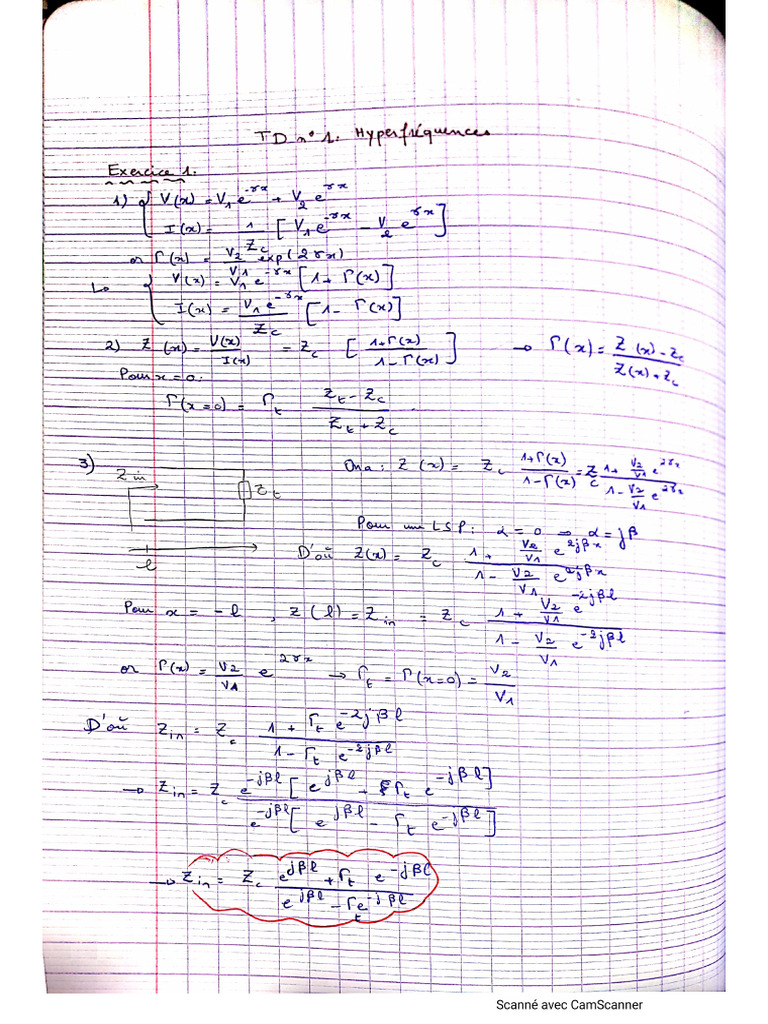 TD n° 1. Hyperfréquences
Exercice 1.
1) { V(x) = V₁e^{-γx} + V₂e^{γx}
I(x) = 1/Z_c [V₁e^{-γx} - V₂e^{γx}]
or Γ(x) = V₂/V₁ exp(2γx)
↳ { V(x) = V₁e^{-γx} [1+ Γ(x)]
I(x) = V₁e^{-γx}/Z_c [1- Γ(x)]
2) Z(x) = V(x)/I(x) = Z_c [(1+Γ(x))/(1-Γ(x))] → Γ(x) = (Z(x)-Z_c)/(Z(x)+Z_c)
Pour x=0:
Γ(x=0) = Γ_t (Z_t-Z_c)/(Z_t+Z_c)
3) Ona: Z(x) = Z_c (1+Γ(x))/(1-Γ(x)) = Z_c (1+ V₂/V₁ e^{2γx})/(1- V₂/V₁ e^{2γx})
Z_in
Z_t
Pour un LSP: α=0 ⇒ α=jβ
-l
D'où Z(x) = Z_c (1+ V₂/V₁ e^{2jβx})/(1- V₂/V₁ e^{2jβx})
Pour x = -l , Z(l) = Z_in = Z_c (1+ V₂/V₁ e^{-2jβl})/(1- V₂/V₁ e^{-2jβl})
or Γ(x) = V₂/V₁ e^{2γx} → Γ_t = Γ(x=0) = V₂/V₁
D'où Z_in = Z_c (1+ Γ_t e^{-2jβl})/(1- Γ_t e^{-2jβl})
→ Z_in = Z_c (e^{-jβl}[e^{jβl} + Γ_t e^{-jβl}])/(e^{-jβl}[e^{jβl} - Γ_t e^{-jβl}])
→ Z_in = Z_c (e^{jβl} + Γ_t e^{-jβl})/(e^{jβl} - Γ_t e^{-jβl})
Scanné avec CamScanner